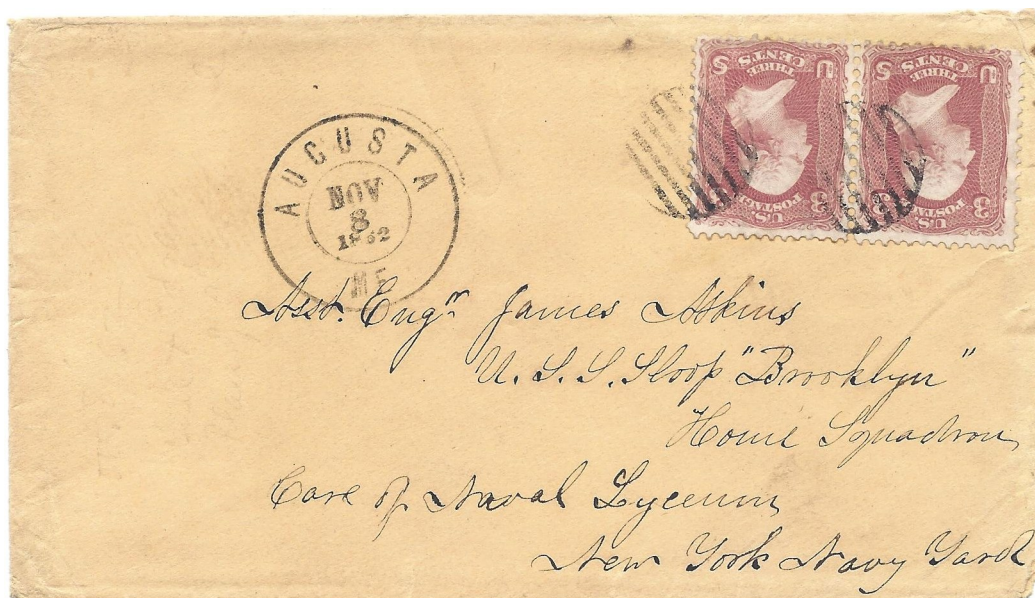 AUGUSTA
NOV
8
1862
ME
U THREE CENTS S
3 U.S. POSTAGE 3
U THREE CENTS S
3 U.S. POSTAGE 3
Asst. Engr James Atkins
U. S. S. Sloop "Brooklyn"
Home Squadron
Care of Naval Lyceum
New York Navy Yard